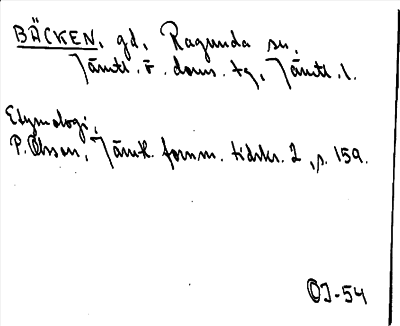 BÄCKEN, gd, Ragunda sn,
Jämtl. ö. doms. tg, Jämtl. l.
Etymologi:
P. Olsson, Jämtl. fornm. tidskr. 2, s. 159.
OJ-54